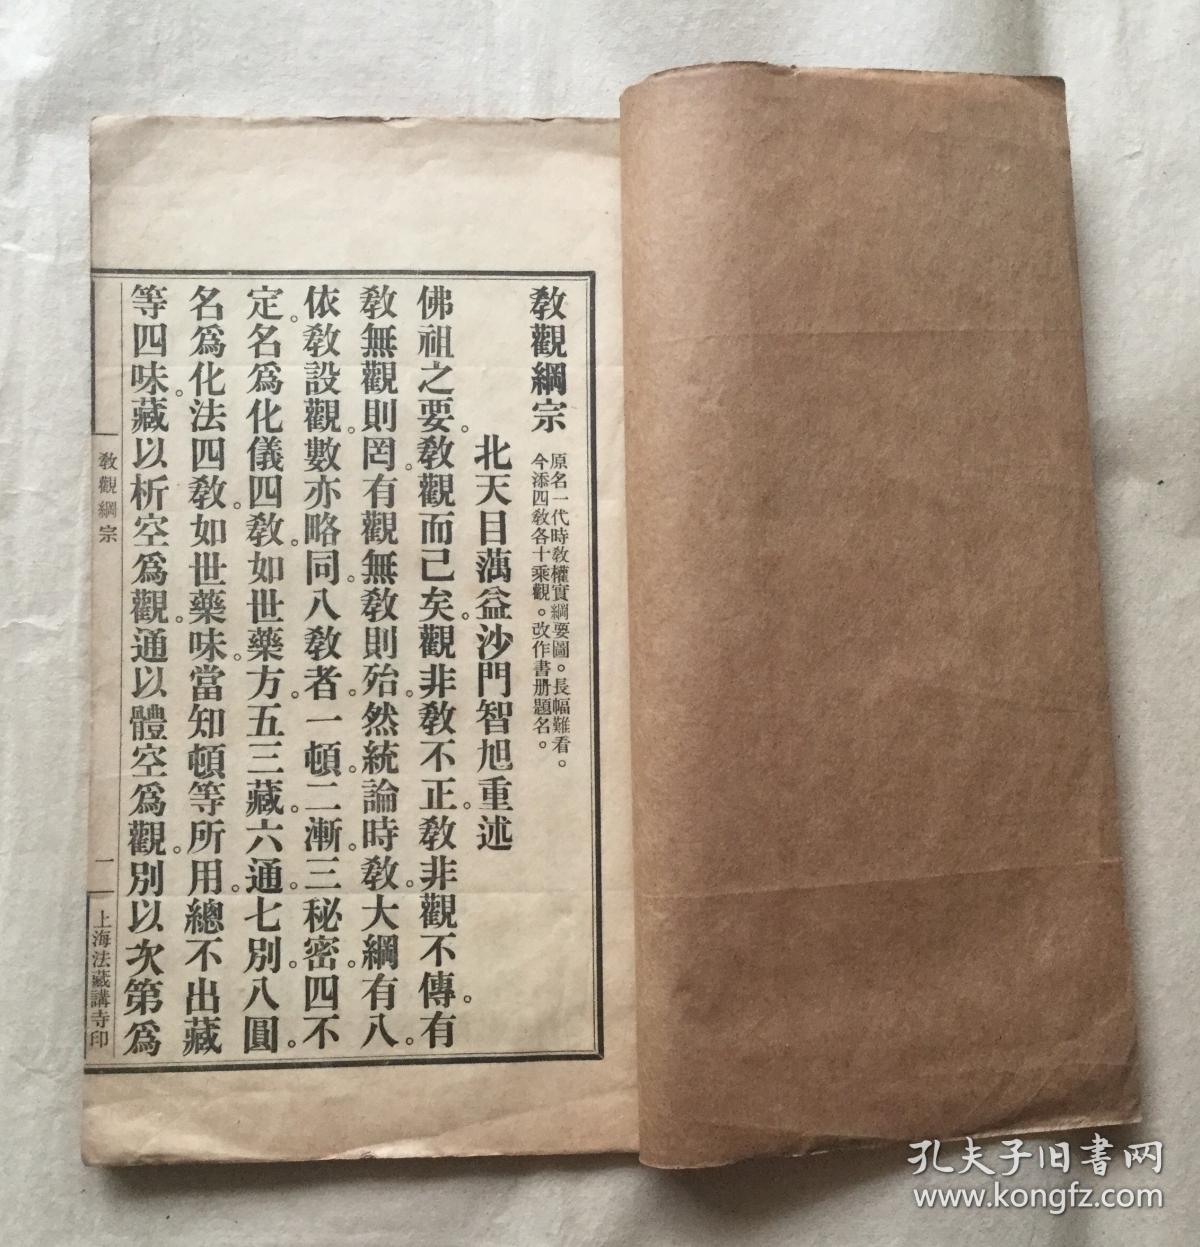 教觀綱宗
原名一代時教權實綱要圖。長幅難看。
今添四教各十乘觀。改作書册題名。
北天目蕅益沙門智旭重述
佛祖之要。教觀而已矣。觀非教不正。教非觀不傳。有
教無觀則罔。有觀無教則殆。然統論時教。大綱有八。
依教設觀。數亦略同。八教者。一頓。二漸。三秘密。四不
定。名爲化儀四教。如世藥方。五三藏。六通。七別。八圓。
名爲化法四教。如世藥味。當知頓等所用。總不出藏
等四味。藏以析空爲觀。通以體空爲觀。別以次第爲
教觀綱宗
一
上海法藏講寺印
孔夫子旧书网
www.kongfz.com